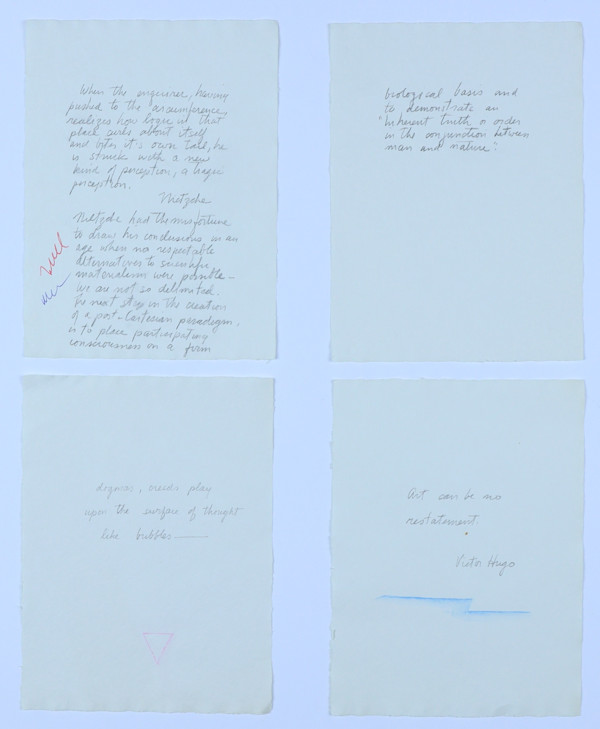 When the enquirer, having
pushed to the circumference,
realizes how logic in that
place curls about itself
and bites it's own tail, he
is struck with a new
kind of perception, a tragic
perception.
Nietzche
Nietzche had the misfortune
to draw his conclusions in an
age where no respectable
alternatives to scientific
materialism were possible —
we are not so delimited.
The next step in the creation
of a post-Cartesian paradigm,
is to place participating
consciousness on a firm
biological basis and
to demonstrate an
"Inherent truth or order
in the conjunction between
man and nature".
dogmas, creeds play
upon the surface of thought
like bubbles —
Art can be no
restatement.
Victor Hugo